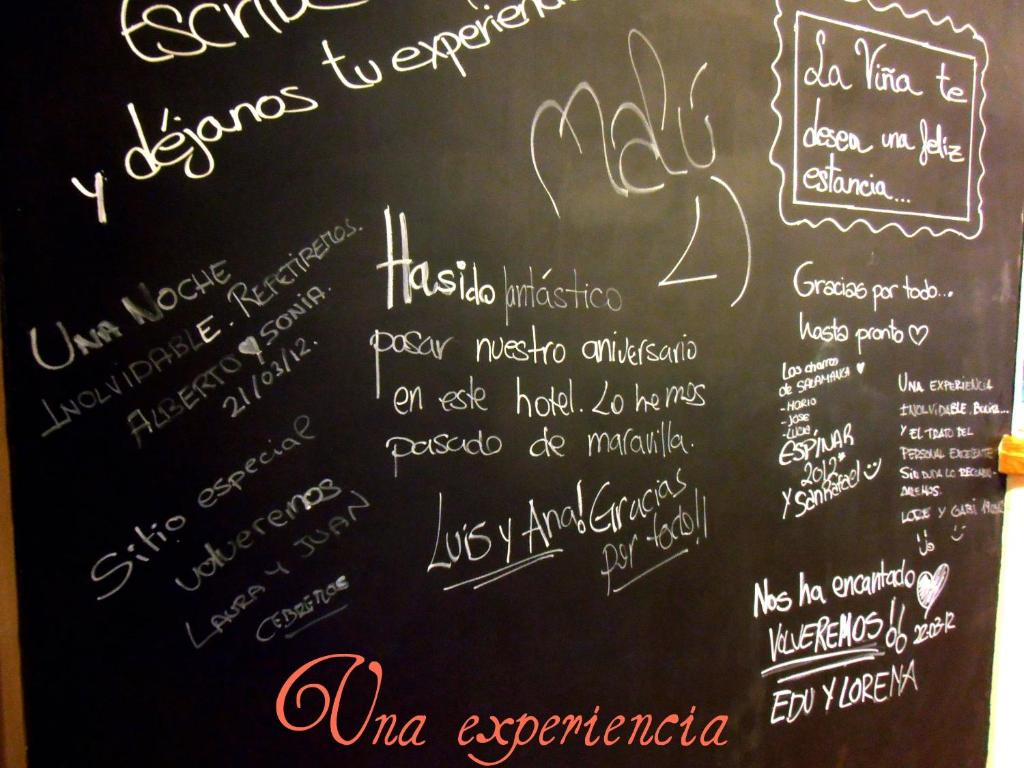 y déjanos tu experiencia
Malú
La Viña te
desea una feliz
estancia...
UNA NOCHE
INOLVIDABLE. REPETIREMOS.
ALBERTO SONIA.
21/03/12.
Ha sido fantástico
pasar nuestro aniversario
en este hotel. Lo hemos
pasado de maravilla.
LUIS y Ana! Gracias
por todo!!
Gracias por todo...
hasta pronto ♡
Los charros
de SALAMANCA ♥
- MARIO
- JOSE
- LUCIA
ESPINAR
2012*
Y San Rafael
UNA EXPERIENCIA
INOLVIDABLE.
Y EL TRATO DEL
PERSONAL EXCELENTE
SIN DUDA LO RECOMEN-
DAREMOS.
LORE Y GABI
Sitio especial
volveremos
LAURA Y JUAN
Nos ha encantado
VOLVEREMOS!!
22-03-12
EDU Y LORENA
Una experiencia